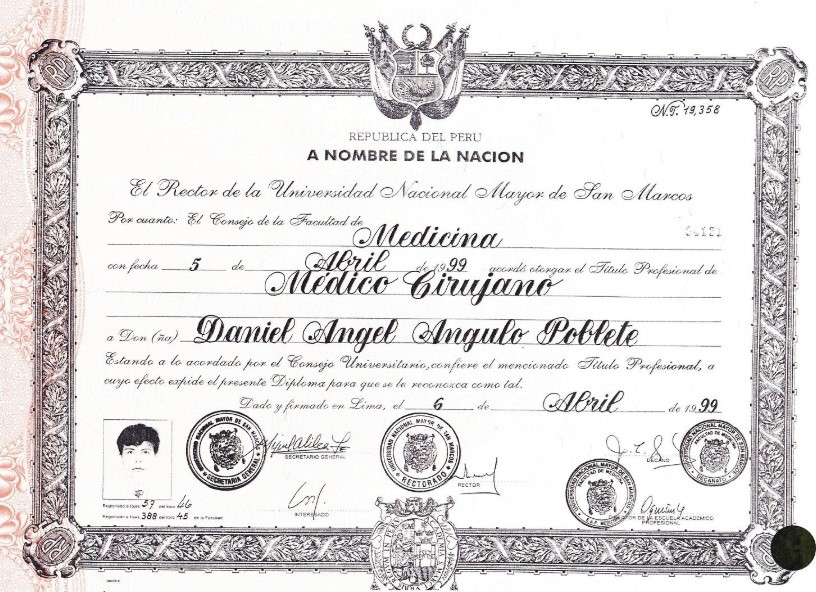 N.T. 19,358
REPUBLICA DEL PERU
A NOMBRE DE LA NACION
El Rector de la Universidad Nacional Mayor de San Marcos
Por cuanto: El Consejo de la Facultad de
Medicina
con fecha 5 de Abril de 1999 acordó otorgar el Título Profesional de
Médico Cirujano
a Don (ña) Daniel Angel Angulo Poblete
Estando a lo acordado por el Consejo Universitario, confiere el mencionado Título Profesional, a
cuyo efecto expide el presente Diploma para que se le reconozca como tal.
Dado y firmado en Lima, el 6 de Abril de 1999
UNIVERSIDAD NACIONAL MAYOR DE SAN MARCOS
RECTORADO
SECRETARIA GENERAL
SECRETARIO GENERAL
RECTOR
DECANO
DECANATO
INTERESADO
Registrado a fojas 57 del libro 46
Registrado a fojas 388 del libro 45 de la Facultad
DIRECTOR DE LA ESCUELA ACADEMICO
PROFESIONAL